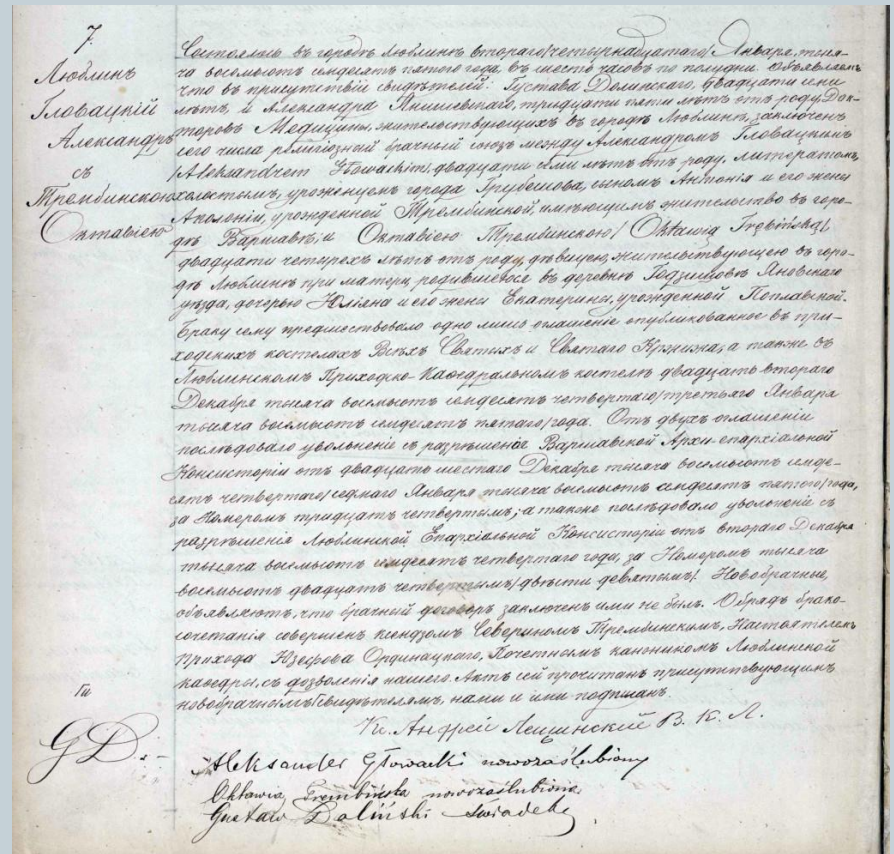 7.
Люблинъ
Гловацкій
Александръ
съ
Трембинскою
Октавіею
Состоялось въ городѣ Люблинѣ втораго/четырнадцатаго/ Января, тыся-
ча восемьсотъ семдесятъ пятого года, въ шесть часовъ по полудни. Объявляемъ
что въ присутствіи свидѣтелей: Густава Долинскаго, двадцати семи
лѣтъ, и Александра Янишевскаго, тридцати пяти лѣтъ отъ роду, Док-
торовъ Медицины, жительствующихъ въ городѣ Люблинѣ, заключенъ
сего числа религіозный брачный союзъ между Александромъ Гловацкимъ
/Aleksandrem Głowackim/, двадцати семи лѣтъ отъ роду, литераторомъ,
холостымъ, уроженцемъ города Грубешова, сыномъ Антонія и его жены
Аполоніи, урожденной Трембинской, имѣющимъ жительство въ горо-
дѣ Варшавѣ, и Октавіею Трембинскою / Oktawią Trębińską /,
двадцати четырехъ лѣтъ отъ роду, дѣвицею, жительствующею въ горо-
дѣ Люблинѣ при матери, родившеюся въ деревнѣ Яновскаго
уѣзда, дочерью Юліана и его жены Екатерины, урожденной Поплавской.
Браку сему предшествовало одно лишь оглашеніе опубликованное въ при-
ходскихъ костелахъ Всѣхъ Святыхъ и Святаго Кржижа, а также въ
Люблинскомъ Приходско-Кафедральномъ костелѣ двадцать втораго
Декабря тысяча восемьсотъ семдесятъ четвертаго/третьяго Января
тысяча восемьсотъ семдесятъ пятаго/года. Отъ двухъ оглашеній
послѣдовало увольненіе съ разрѣшенія Варшавской Архи-епархіальной
Консисторіи отъ двадцать шестаго Декабря тысяча восемьсотъ семде-
сятъ четвертаго/седмаго Января тысяча восемьсотъ семдесятъ пятаго/года,
за Номеромъ тридцать четвертымъ, а также послѣдовало увольненіе съ
разрѣшенія Люблинской Епархіальной Консисторіи отъ втораго Декабря
тысяча восемьсотъ семдесятъ четвертаго года, за Номеромъ тысяча
восемьсотъ двадцать четвертымъ/двѣсти девятымъ/. Новобрачные,
объявляютъ, что брачный договоръ заключенъ ими не былъ. Обрядъ брако-
сочетанія совершенъ ксендзомъ Севериномъ Трембинскимъ, Настоятелемъ
прихода Юзефова Ординацкаго, Почетнымъ каноникомъ Люблинской
кафедры, съ дозволенія нашего. Актъ сей прочитанъ присутствующимъ
новобрачнымъ, Свидѣтелямъ, нами и ими подписанъ.
Кс. Андрей В. К. Л.
Aleksander Głowacki nowozaślubiony
Oktawia Trembińska nowozaślubiona
Gustaw Doliński świadek
G D.